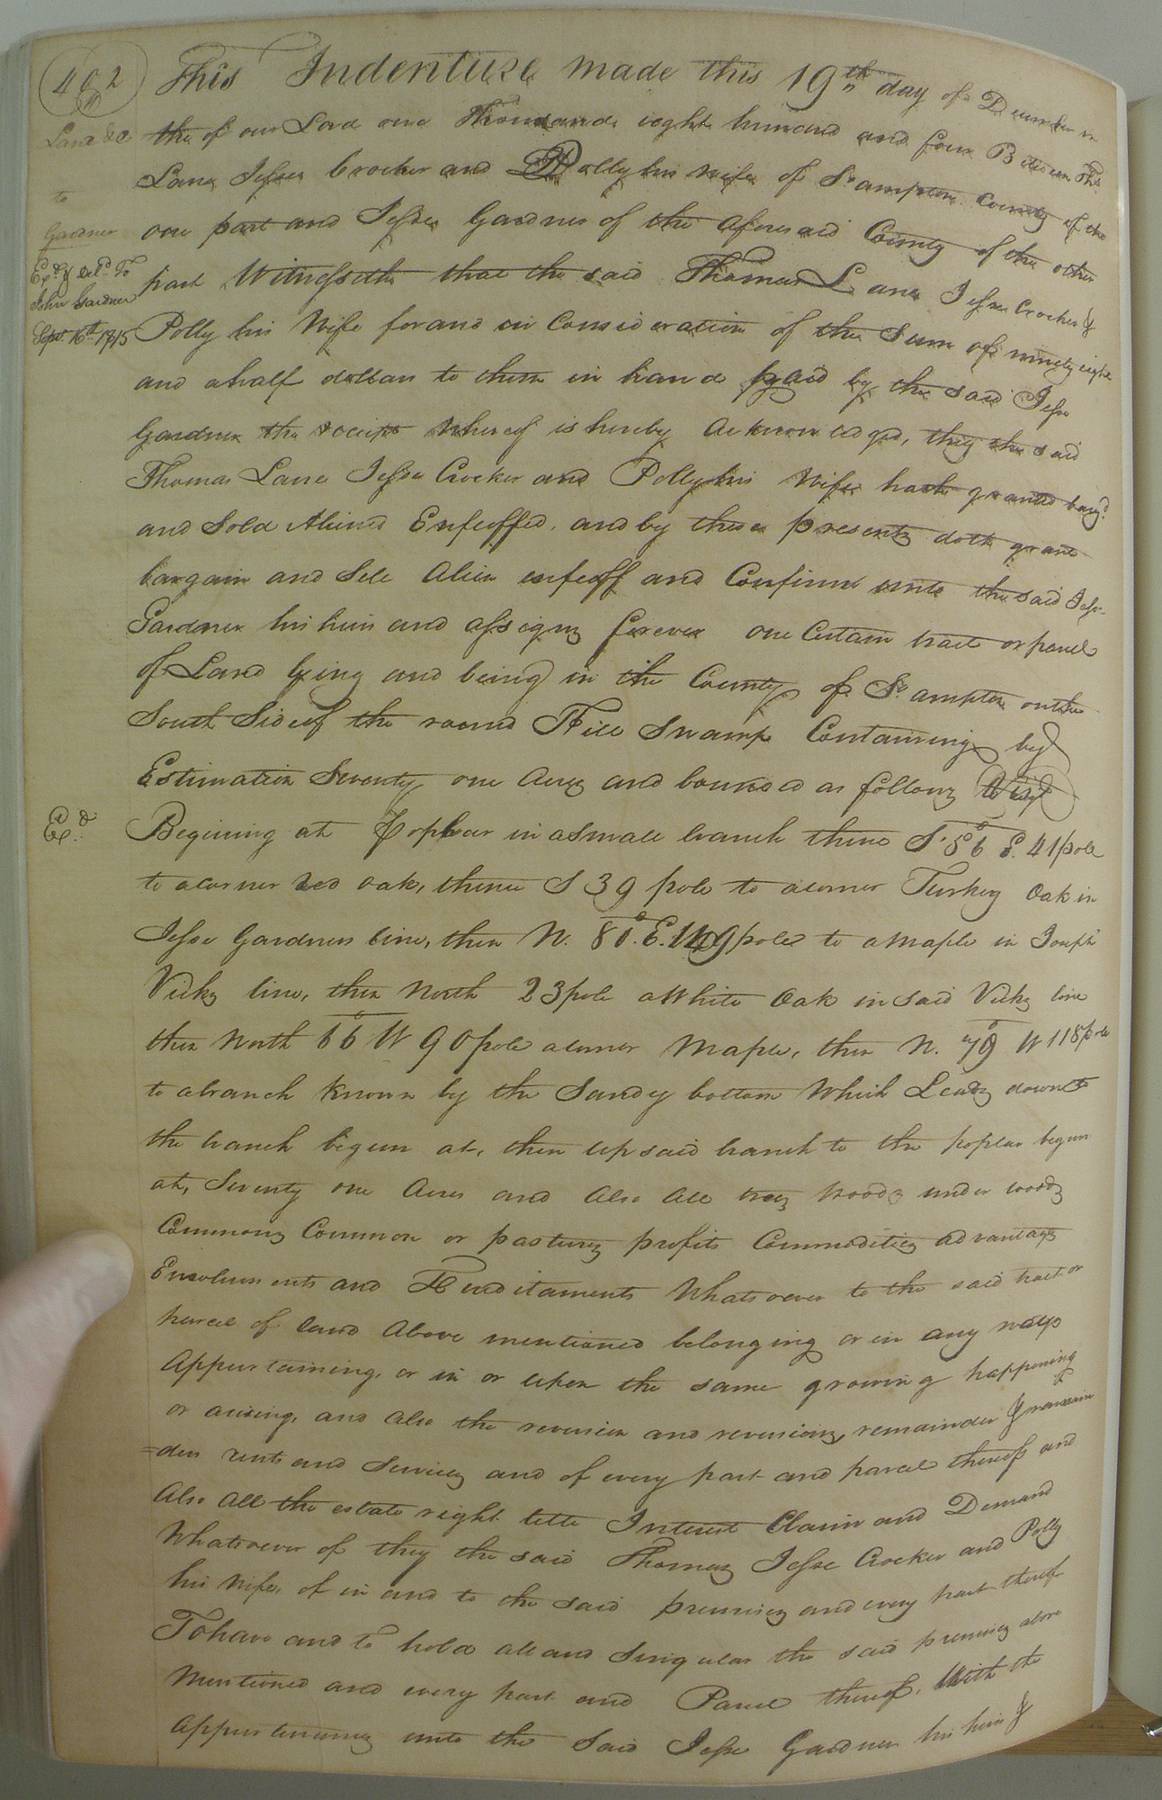 402
This Indenture made this 19th day of December in
Lane &c
the of our Lord one Thousand eight hundred and four Between Thos.
Lane Jesse Crocker and Polly his wife of So.ampton County of the
to
Gardner
one part and Jesse Gardner of the aforesaid County of the other
Ex.d & Del.d To
John Gardner
Sept. 16th 1815
part Witnesseth that the said Thomas Lane Jesse Crocker &
Polly his Wife for and in Consideration of the Sum of ninety eight
and a half dollars to them in hand paid by the said Jesse
Gardner the receipt whereof is hereby acknowledged, they the said
Thomas Lane Jesse Crocker and Polly his Wife hath granted barg.d
and Sold Aliend Enfeoffed, and by these presents doth grant
bargain and Sell Alien enfeoff and Confirm unto the said Jesse
Gardner his heirs and assigns forever one Certain tract or parcel
of Land lying and being in the County of So.ampton on the
South Side of the round Hill Swamp Containing by
Estimation Seventy one Acres and bounded as follows to wit
Ex.d
Begining at Poplear in a Small branch thence S. 56 E. 41 pole
to a corner red oak, thence S 39 pole to a corner Turkey Oak in
Jesse Gardners line, then N. 80. E. 149 poles to a maple in Joseph
Vicks line, then North 23 pole a White Oak in said Vicks line
then North 66 W 90 pole a corner Maple, then N. 79 W 118 pole
to a branch known by the Sandy bottom Which Leads down to
the branch begun at, then up said branch to the poplar begun
at, Seventy one Acres and Also All trees woods under woods
Commons Common or pastures profits Commodities advantages
Emoluments and Hereditaments Whatsoever to the said tract or
parcel of land Above mentioned belonging or in any ways
Appurtaining, or in or upon the same growing happening
or arising, and also the reversion and reversions, remainder & remain
=der rents and Services and of every part and parcel thereof and
Also All the estate right title Interest Claim and Demand
Whatsoever of they the said Thomas Jesse Crocker and Polly
his Wife, of in and to the said premises and every part thereof
To have and to hold all and Singular the said premises above
Mentioned and every part and Parcel thereof, With the
Appurtenances unto the Said Jesse Gardner his heirs &